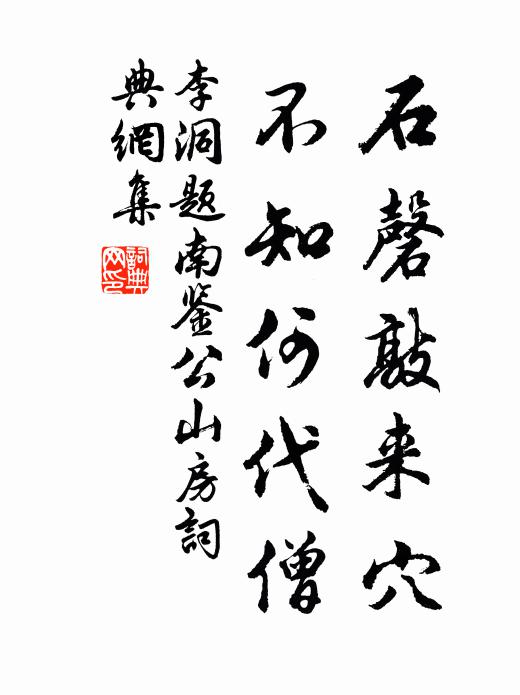 石磬敲来穴
不知何代僧
李洞題南鉴公山房詞
典網集
詞典
网印